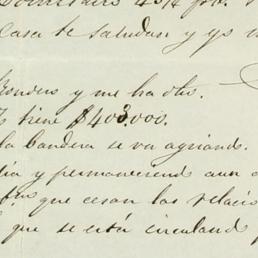 Casa te saludan y yo
y me ha dho.
tiene $403.000.
la bandera se va agriando.
y permaneciendo aun
que cesan las relacio
que se está circulando